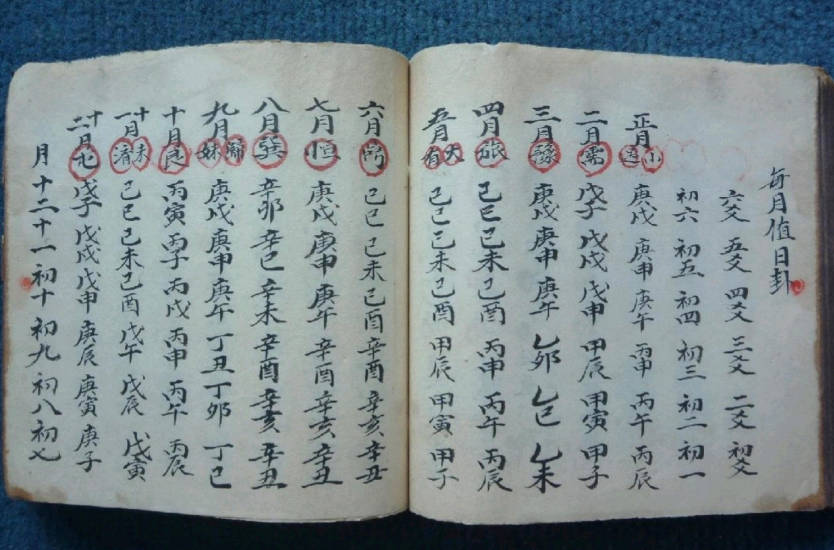 每月值日卦
六爻 五爻 四爻 三爻 二爻 初爻
初六 初五 初四 初三 初二 初一
正月 小过 庚戌 庚申 庚午 丙申 丙午 丙辰
二月 需 戊子 戊戌 戊申 甲辰 甲寅 甲子
三月 豫 庚戌 庚申 庚午 乙卯 乙巳 乙未
四月 旅 己巳 己未 己酉 丙申 丙午 丙辰
五月 大有 己巳 己未 己酉 甲辰 甲寅 甲子
六月 己巳 己未 己酉 辛酉 辛亥 辛丑
七月 恒 庚戌 庚申 庚午 辛酉 辛亥 辛丑
八月 巽 辛卯 辛巳 辛未 辛酉 辛亥 辛丑
九月 歸妹 庚戌 庚申 庚午 丁丑 丁卯 丁巳
十月 艮 丙寅 丙子 丙戌 丙申 丙午 丙辰
十一月 未濟 己巳 己未 己酉 戊午 戊辰 戊寅
十二月 屯 戊子 戊戌 戊申 庚辰 庚寅 庚子
月 十二 十一 初十 初九 初八 初七